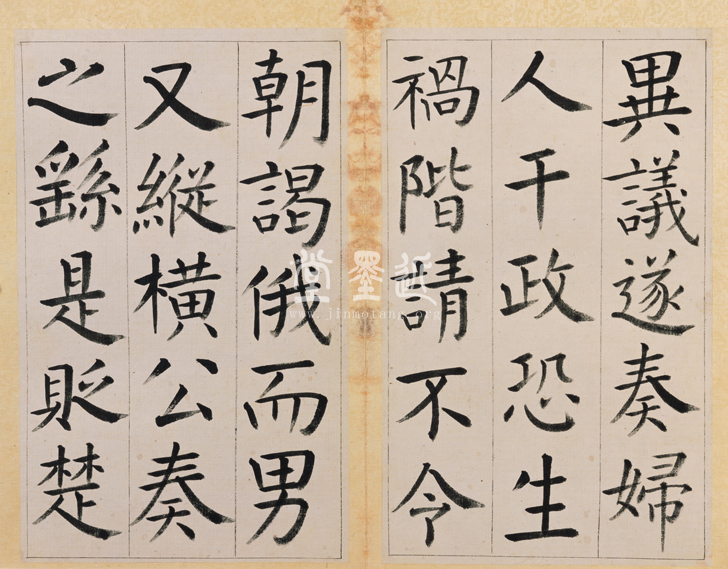 異議遂奏婦
人干政恐生
禍階請不令
朝謁俄而男
又縱橫公奏
之繇是貶楚
近墨堂
www.jinmotang.org